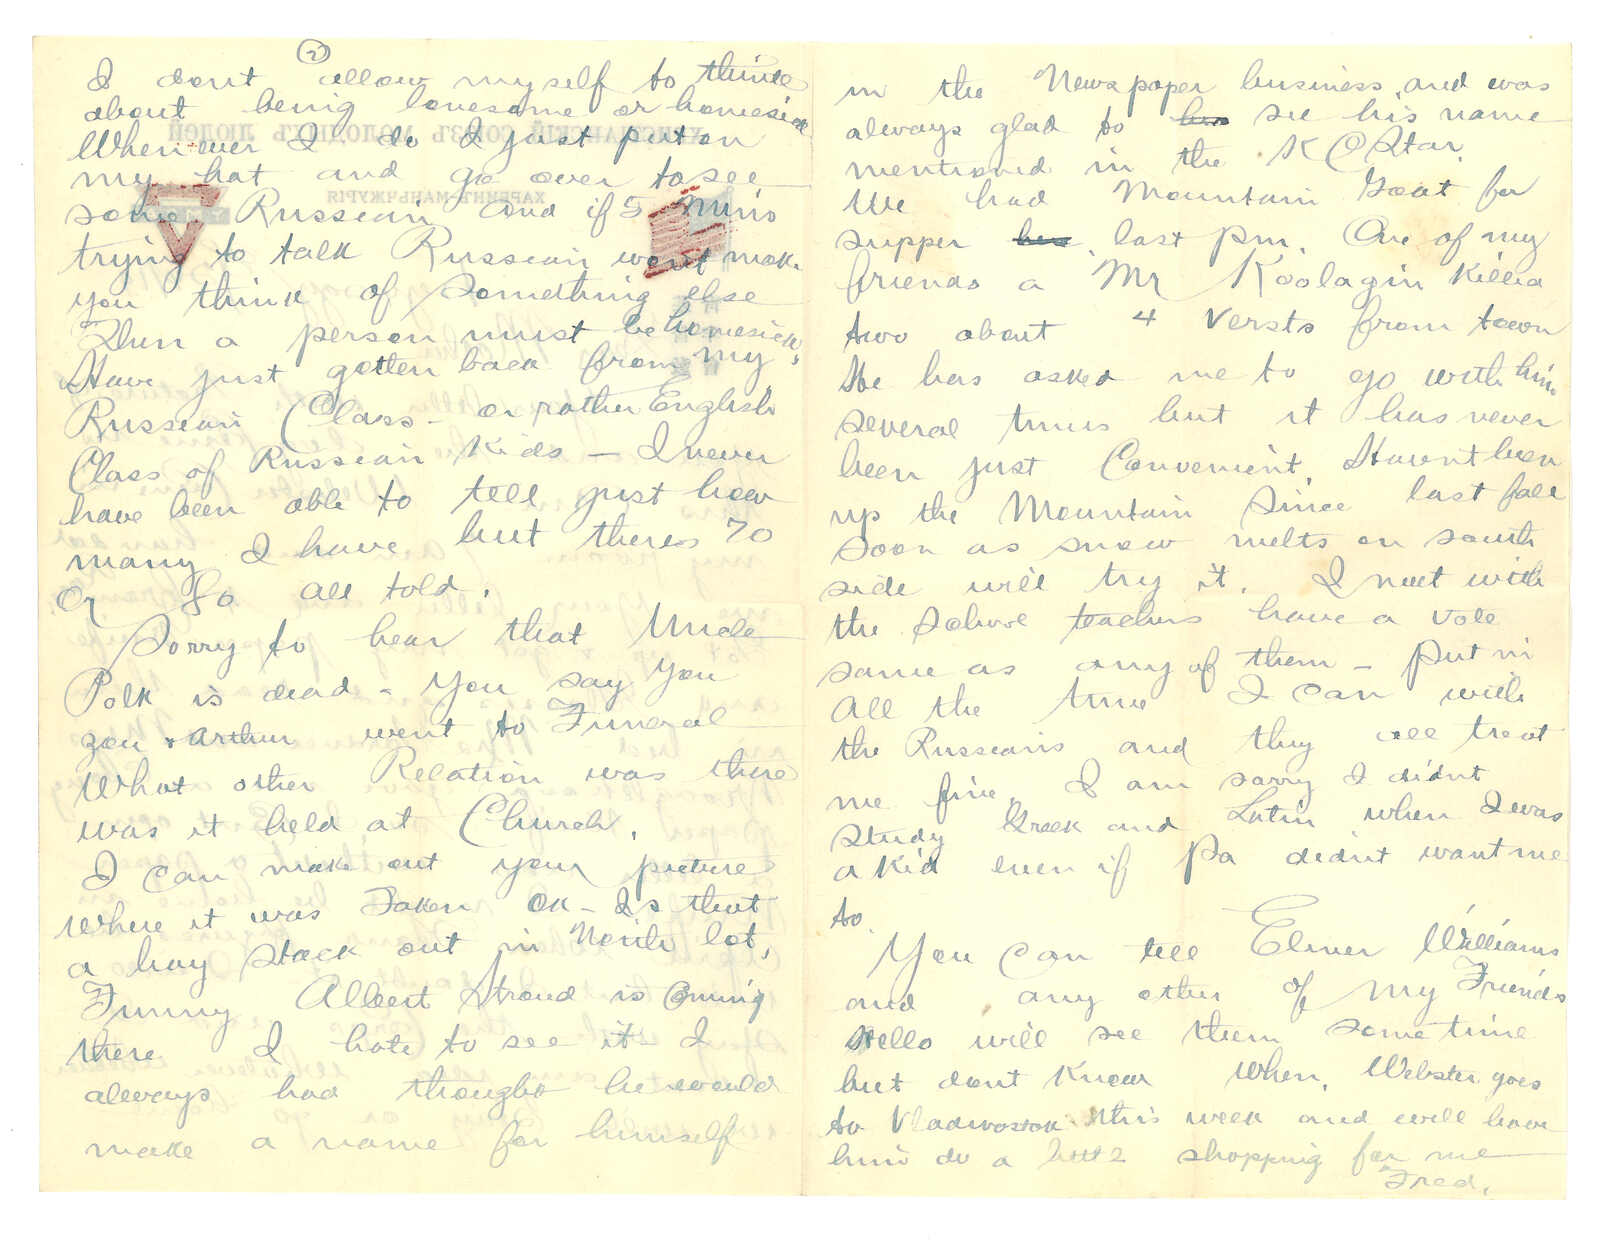 (2)
I dont allow myself to think
about being lonesome or homesick
When ever I do I just put on
my hat and go over to see
some Russian and if 5 mins
trying to talk Russian wont make
you think of something else
Then a person must be homesick.
Have just gotten back from my
Russian Class - or rather English
Class of Russian Kids — I never
have been able to tell just how
many I have but theres 70
or 80 all told.
Sorry to hear that Uncle
Polk is dead - you say you
you & Arthur went to Funeral
What other Relation was there
was it held at Church.
I can make out your picture
where it was Taken OK - Is that
a hay stack out in North lot,
Funny Albert Stroud is coming
there I hate to see it I
always had thought he would
make a name for himself
in the Newspaper business, and was
always glad to see his name
mentioned in the KC Star.
We had Mountain Goat for
supper last pm. One of my
friends a Mr Koolagin Killed
two about 4 Versts from town
He has asked me to go with him
several times but it has never
been just Convenient. Havnt been
up the Mountain Since last fall
soon as snow melts on south
side will try it. I meet with
the School teachers have a vote
same as any of them - Put in
all the time I can with
the Russians and they all treat
me fine. I am sorry I didnt
study Greek and Latin when I was
a kid even if Pa didnt want me
to.
You can tell Elmer Williams
and any other of my Friends
Hello will see them some time
but dont Know when. Webster goes
to Vladivostok this week and will have
him do a little shopping for me
Fred.
ХРИСТІАНСКІЙ СОЮЗЪ МОЛОДЫХЪ ЛЮДЕЙ
ХАРБИНЪ-МАНЬЧЖУРІЯ